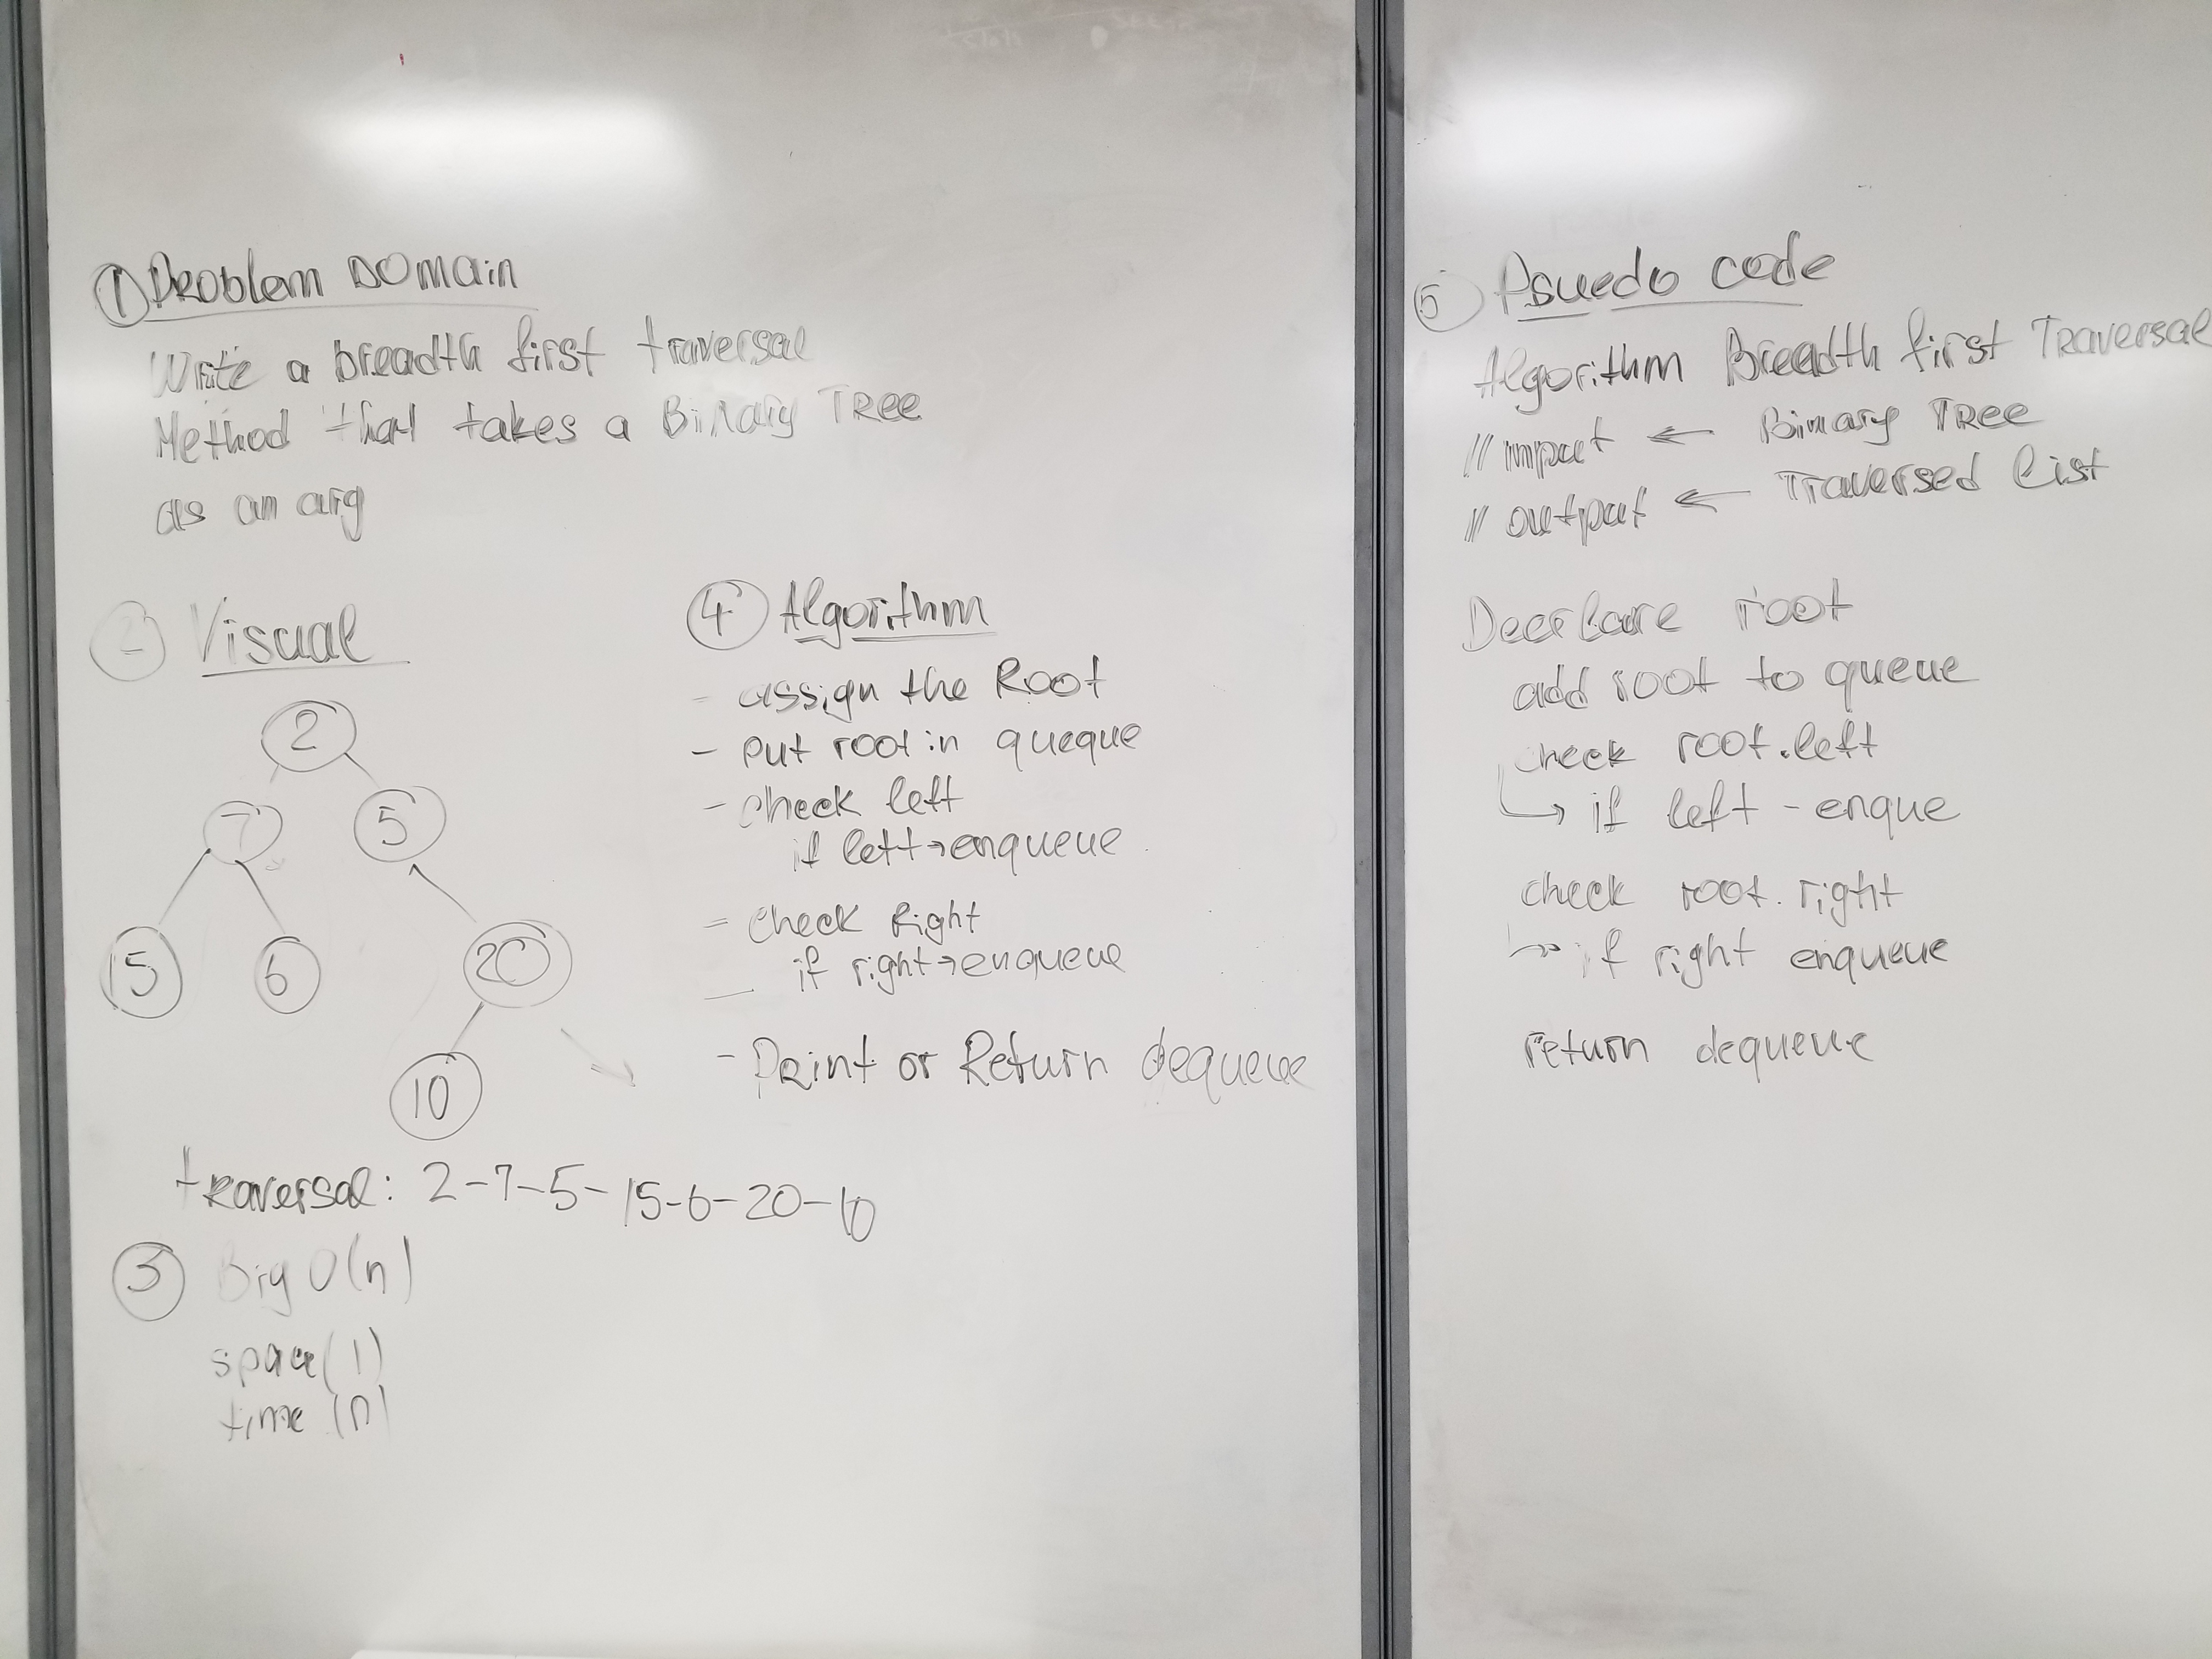 ① Problem Domain
Write a breadth first traversal
Method that takes a Binary Tree
as an arg
② Visual
2
7 5
15 6 20
10
traversal: 2-7-5-15-6-20-10
③ Big O(n)
space(1)
time(n)
④ Algorithm
- assign the Root
- put root in queque
- check left
if left→enqueue
- check Right
if right→enqueue
- Print or Return dequeue
⑤ Psuedo code
Algorithm Breadth first Traversal
// input ← Binary Tree
// output ← Traversed list
root
add root to queue
check root.left
↳ if left - enque
check root.right
↳ if right enqueue
return dequeue